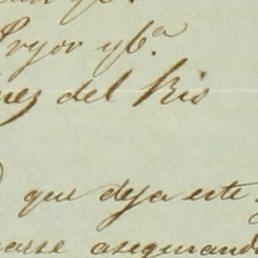 Pryor y b.ª
nez del Rio
que deja este
arse asegurando